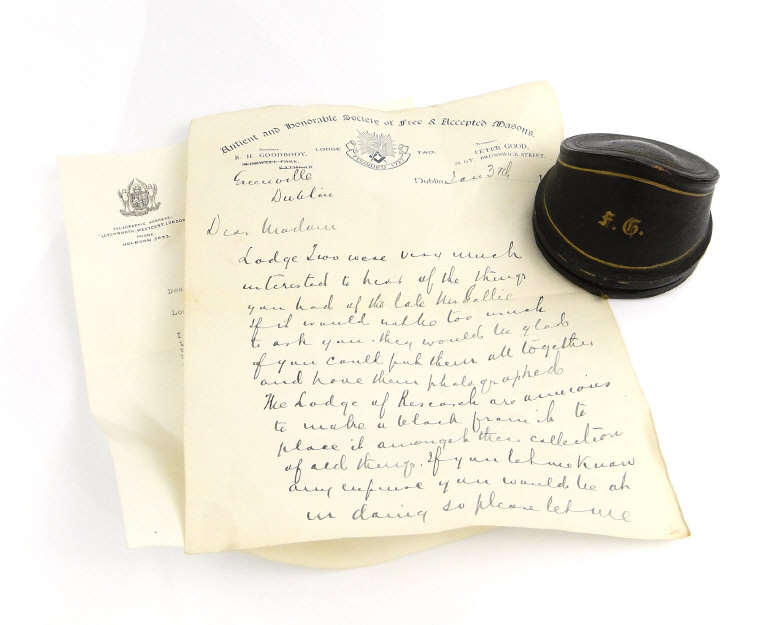 Antient and Honorable Society of Free & Accepted Masons.
R. H. GOODBODY,
LODGE TWO:
PETER GOOD,
BRUNSWICK STREET,
FOUNDED
Greenville
Dublin
Dublin, Jan 3rd
Dear Madam
Lodge Two were very much
interested to hear of the things
you had of the late Mr
If it would not be too much
to ask you. they would be glad
if you could put them all together
and have them photographed
The Lodge of Research are anxious
to make a block from it to
place it amongst their collection
of old things. If you let me know
any expense you would be at
in doing so please let me
TELEGRAPHIC ADDRESS:
LETCHWORTH, WESTCENT, LONDON
PHONE:
HOLBORN
Dea
F. G.